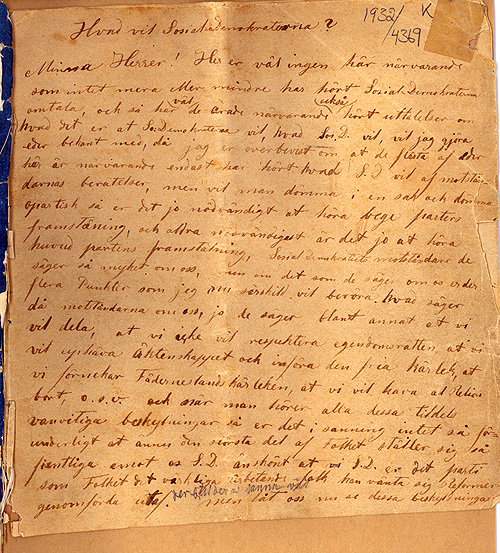 Hvad vil Socialdemokraterna?
1932/ K
/4369
Minna Herrer! Her er väl ingen här närvarande
som intet mera eller mindre har hört Social Demokraterna
omtala, och så har väl de närvarande också hört utthelser om
hvad det er at Soc Demokraterna vil, hvad Soc. D. vil, vil jag gjöra
eder bekant med, då jag er overbevist om at de flesta af eder
her är närvarande endast har hört hvad S. D vil af motstån
darnas beratelser, men vil man dömma i en sak och dömma
opartisk så er det jo nödvändigt at höra bege parters
framstäning, och aldra nödvändigast är det jo at höra
huvud parten framstälning, Sosial Demokratiets motståndare de
säger så myket om oss, men om det som de säger om os er der
flera Punkter som jeg vil beröra, hvad säger
då motståndarna om oss, jo de sager blant annat at vi
vil dela, at vi icke vil respektera egendomsratten, at vi
vil uphäva Äktenskappet och införa den frea kärlek, at
vi förnekar Fäderneslandskärleken, at vi vil hava al Relion
bort, o.s.v. och när man hörer alla dessa tildels
vanvitiga beskylningar så er det i sanning intet så för
underligt at annu den största del af folket ställer sig så
fientliga emot os S.D. änskönt at S.D. er det parti
som Folket det värkliga arbetande folk kan vänta sig Reformer
genomförda utaf, men låt oss nu se dessa beskyldningar